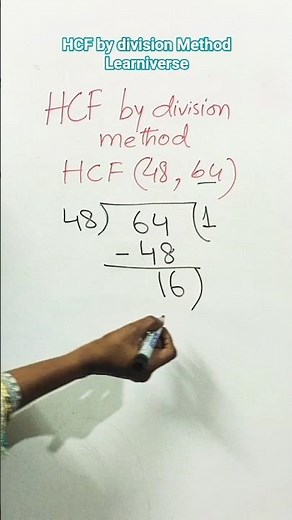 HCF by division Method
Learniverse
HCF by division
method
HCF (48, 64)
48) 64 (1
- 48
16)